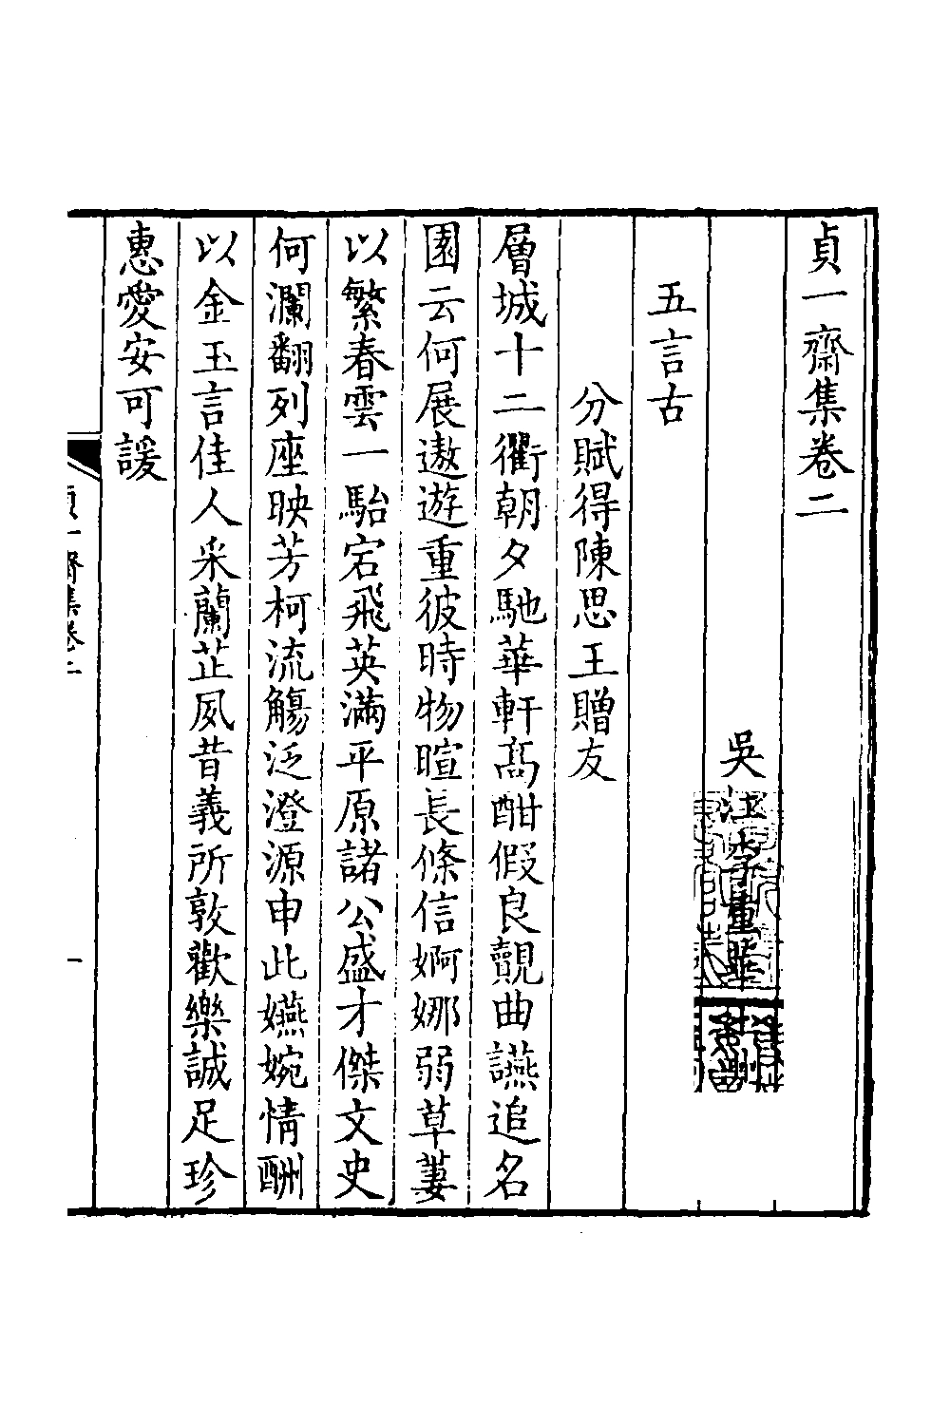 貞一齋集卷二
吳江李重華
五言古
分賦得陳思王贈友
層城十二衢朝夕馳華軒高酣假良覿曲讌追名
園云何展遨遊重彼時物暄長條信婀娜弱草萋
以繁春雲一駘宕飛英滿平原諸公盛才傑文史
何瀾翻列座映芳柯流觴泛澄源申此嬿婉情酬
以金玉言佳人采蘭芷夙昔義所敦歡樂誠足珍
惠愛安可諼
貞一齋集卷二
一